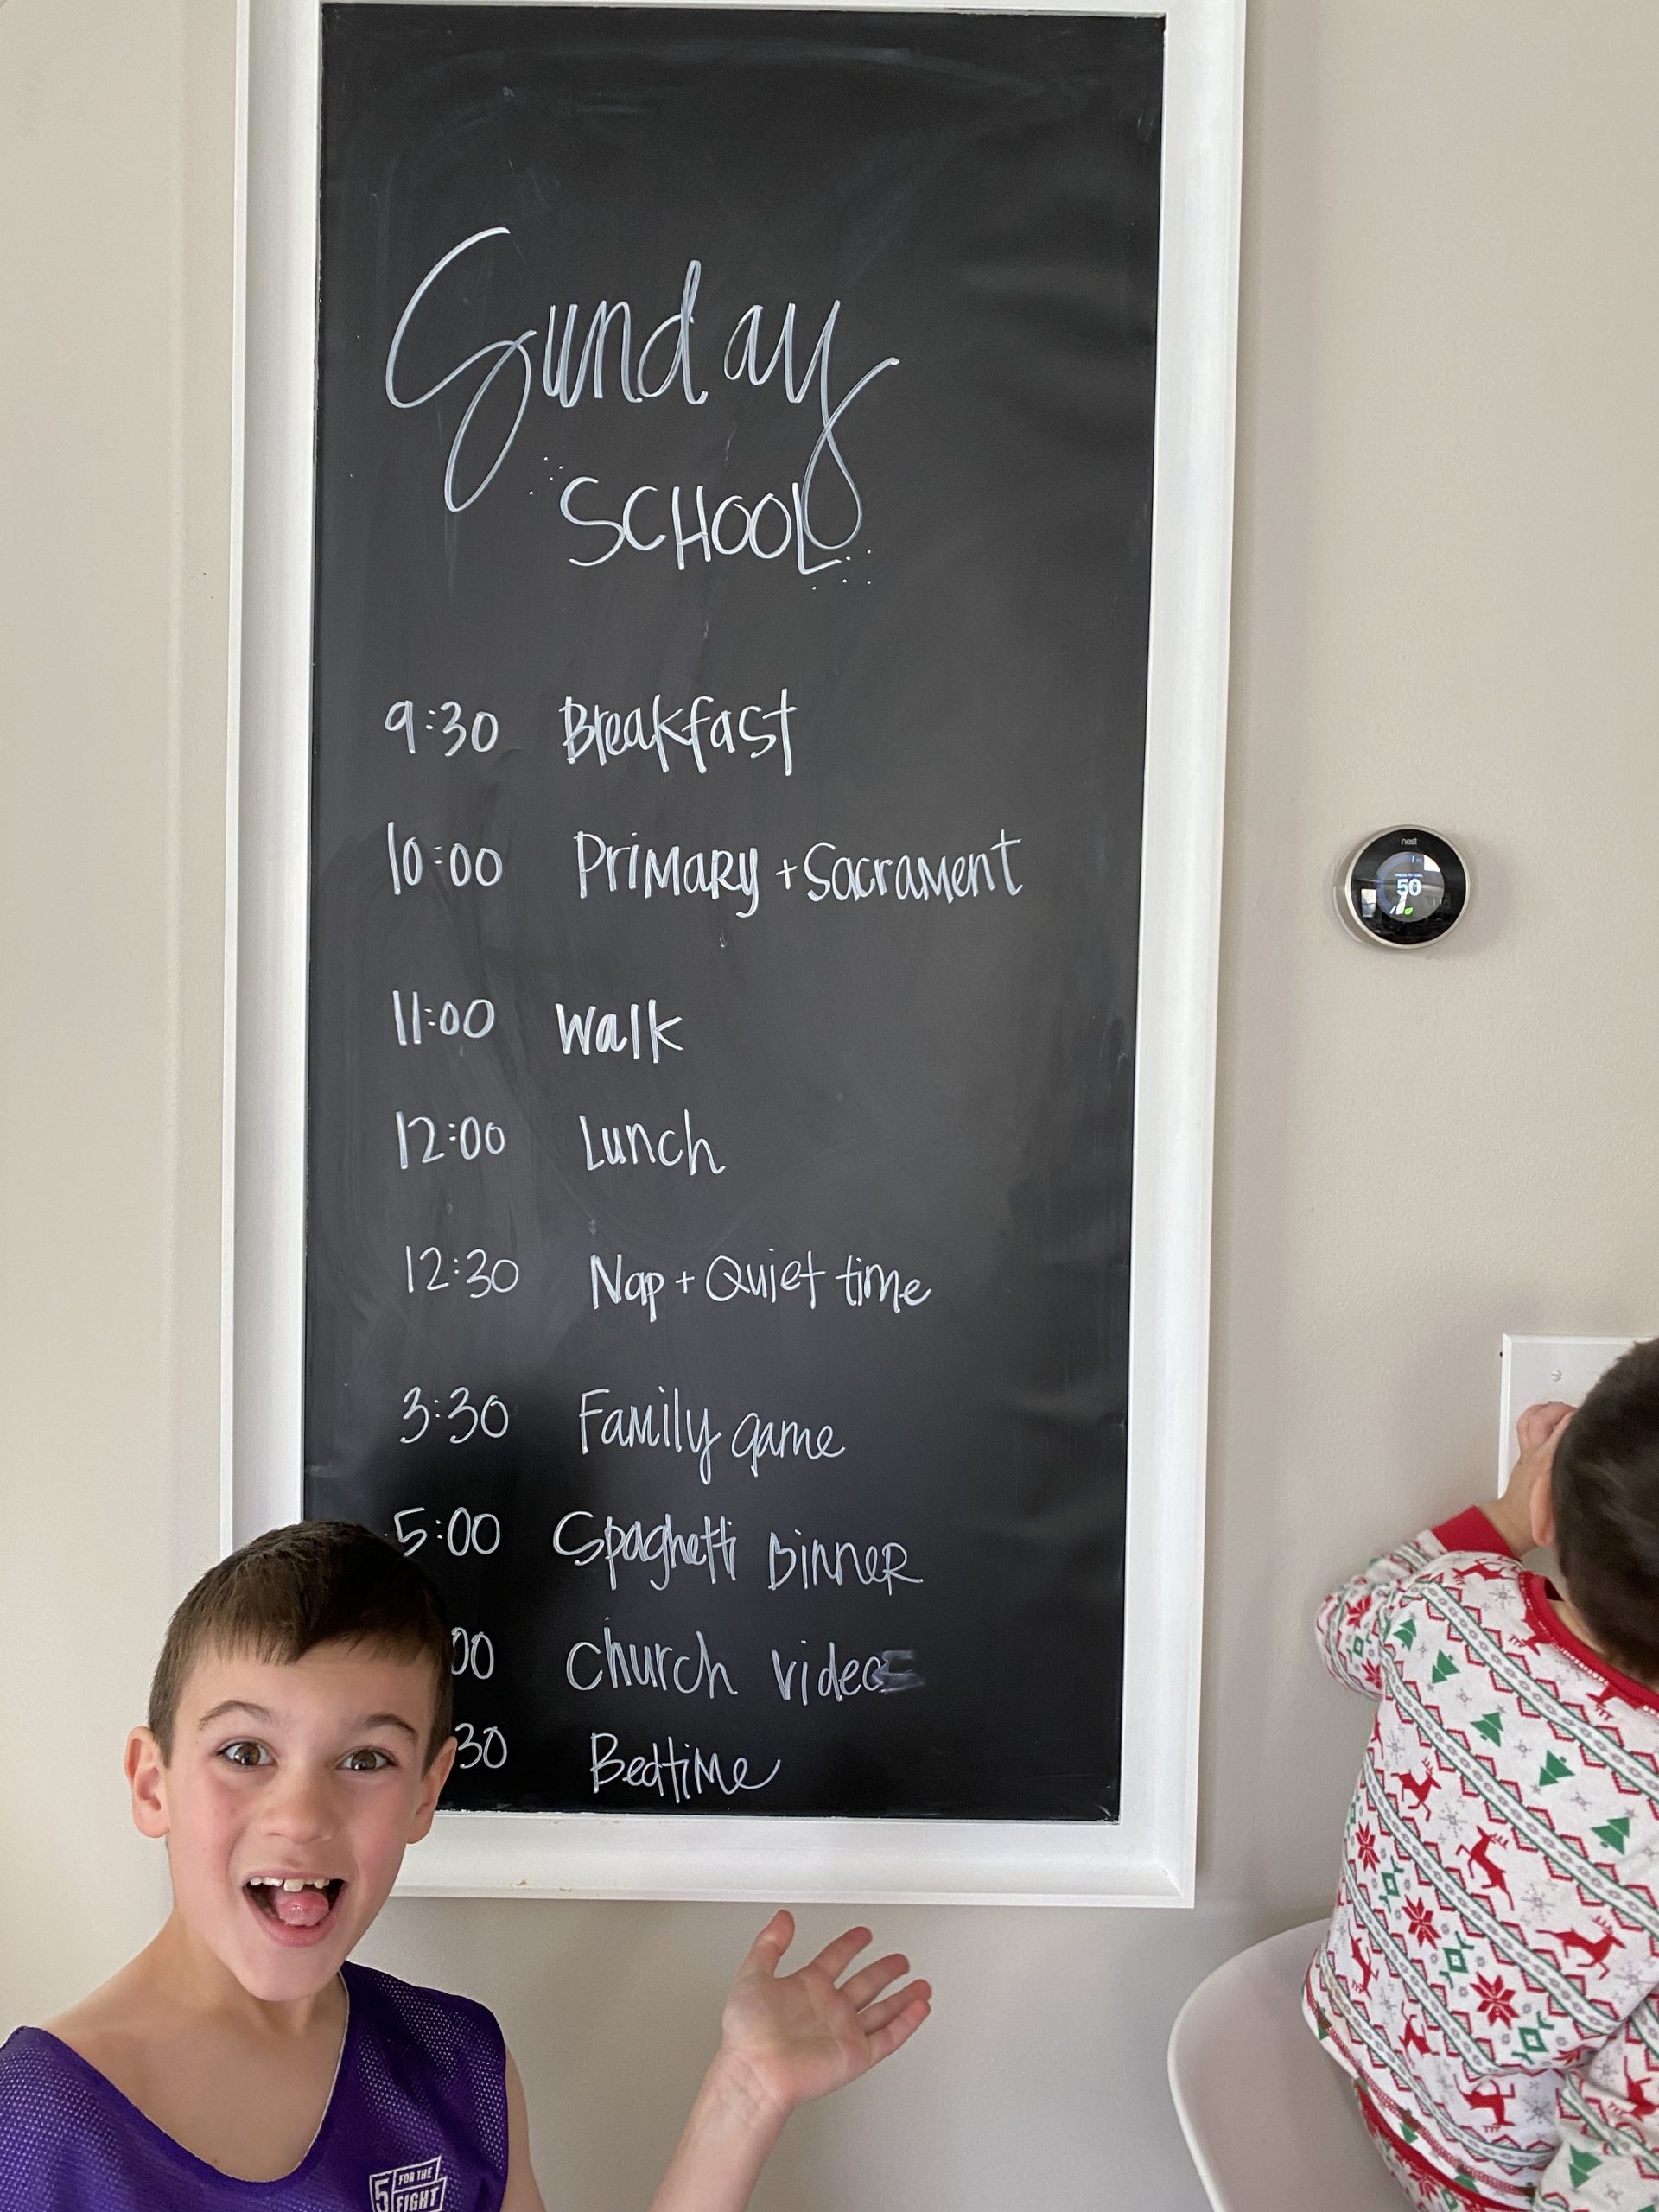 Sunday
SCHOOL
9:30 Breakfast
10:00 Primary + Sacrament
11:00 Walk
12:00 Lunch
12:30 Nap + Quiet time
3:30 Family game
5:00 Spaghetti Dinner
00 Church video
30 Bedtime
nest
PRESS TO COOL
50
5 FOR THE
FIGHT